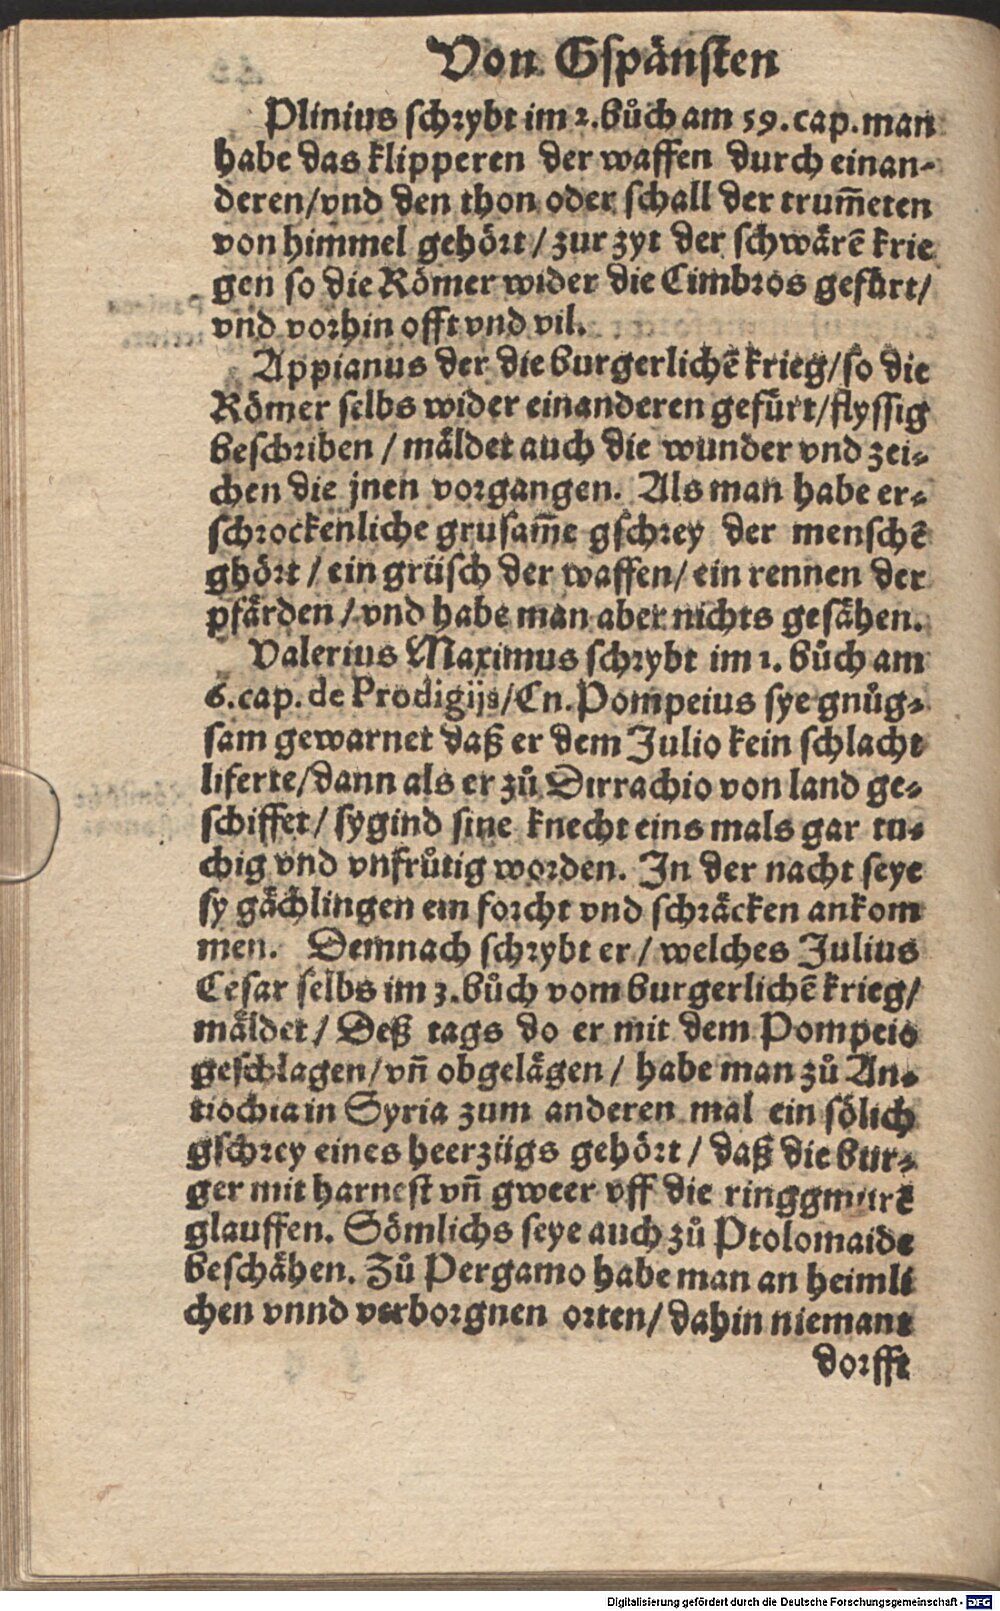 Von Gspånsten
Plinius schrybt im 2.bůch am 59.cap.man
habe das klipperen der waffen durch einan-
deren/vnd den thon oder schall der trum̄eten
von himmel gehört/zur zyt der schwårē krie
gen so die Römer wider die Cimbros gefürt/
vnd vorhin offt vnd vil.
Appianus der die burgerlichē krieg/so die
Römer selbs wider einanderen gefürt/flyssig
beschriben/måldet auch die wunder vnd zei-
chen die jnen vorgangen. Als man habe er-
schrockenliche grusam̄e gschrey der menschē
ghört/ein grüsch der waffen/ein rennen der
pfården/vnd habe man aber nichts gesåhen.
Valerius Maximus schrybt im 1. bůch am
6.cap. de Prodigijs/Cn.Pompeius sye gnůg-
sam gewarnet daß er dem Julio kein schlacht
liferte/dann als er zů Dirrachio von land ge-
schiffet/sygind sine knecht eins mals gar tu-
chig vnd vnfrůtig worden. In der nacht seye
sy gåchlingen ein forcht vnd schråcken ankom
men. Demnach schrybt er/welches Julius
Cesar selbs im 3.bůch vom burgerlichē krieg/
måldet/Deß tags do er mit dem Pompeio
geschlagen/vn̄ obgelågen/habe man zů An-
tiochia in Syria zum anderen mal ein sölich
gschrey eines heerzügs gehört/daß die bur-
ger mit harnest vn̄ gweer vff die ringgmurē
glauffen. Sömlichs seye auch zů Ptolomaide
beschåhen. Zů Pergamo habe man an heimli
chen vnnd verborgnen orten/dahin niemant
dorfft
Digitalisierung gefördert durch die Deutsche Forschungsgemeinschaft - DFG